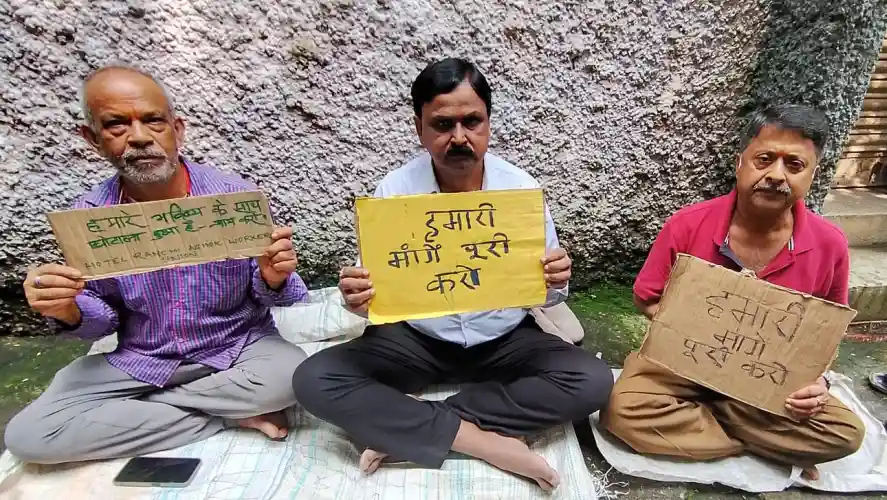 हमारे भविष्य के साथ
घोटाला हुआ है - न्याय करो
HOTEL RANCHI ASHOK WORKER
UNION
हमारी
मांगे पूरी
करो
हमारी
मांगे
पूरी करो